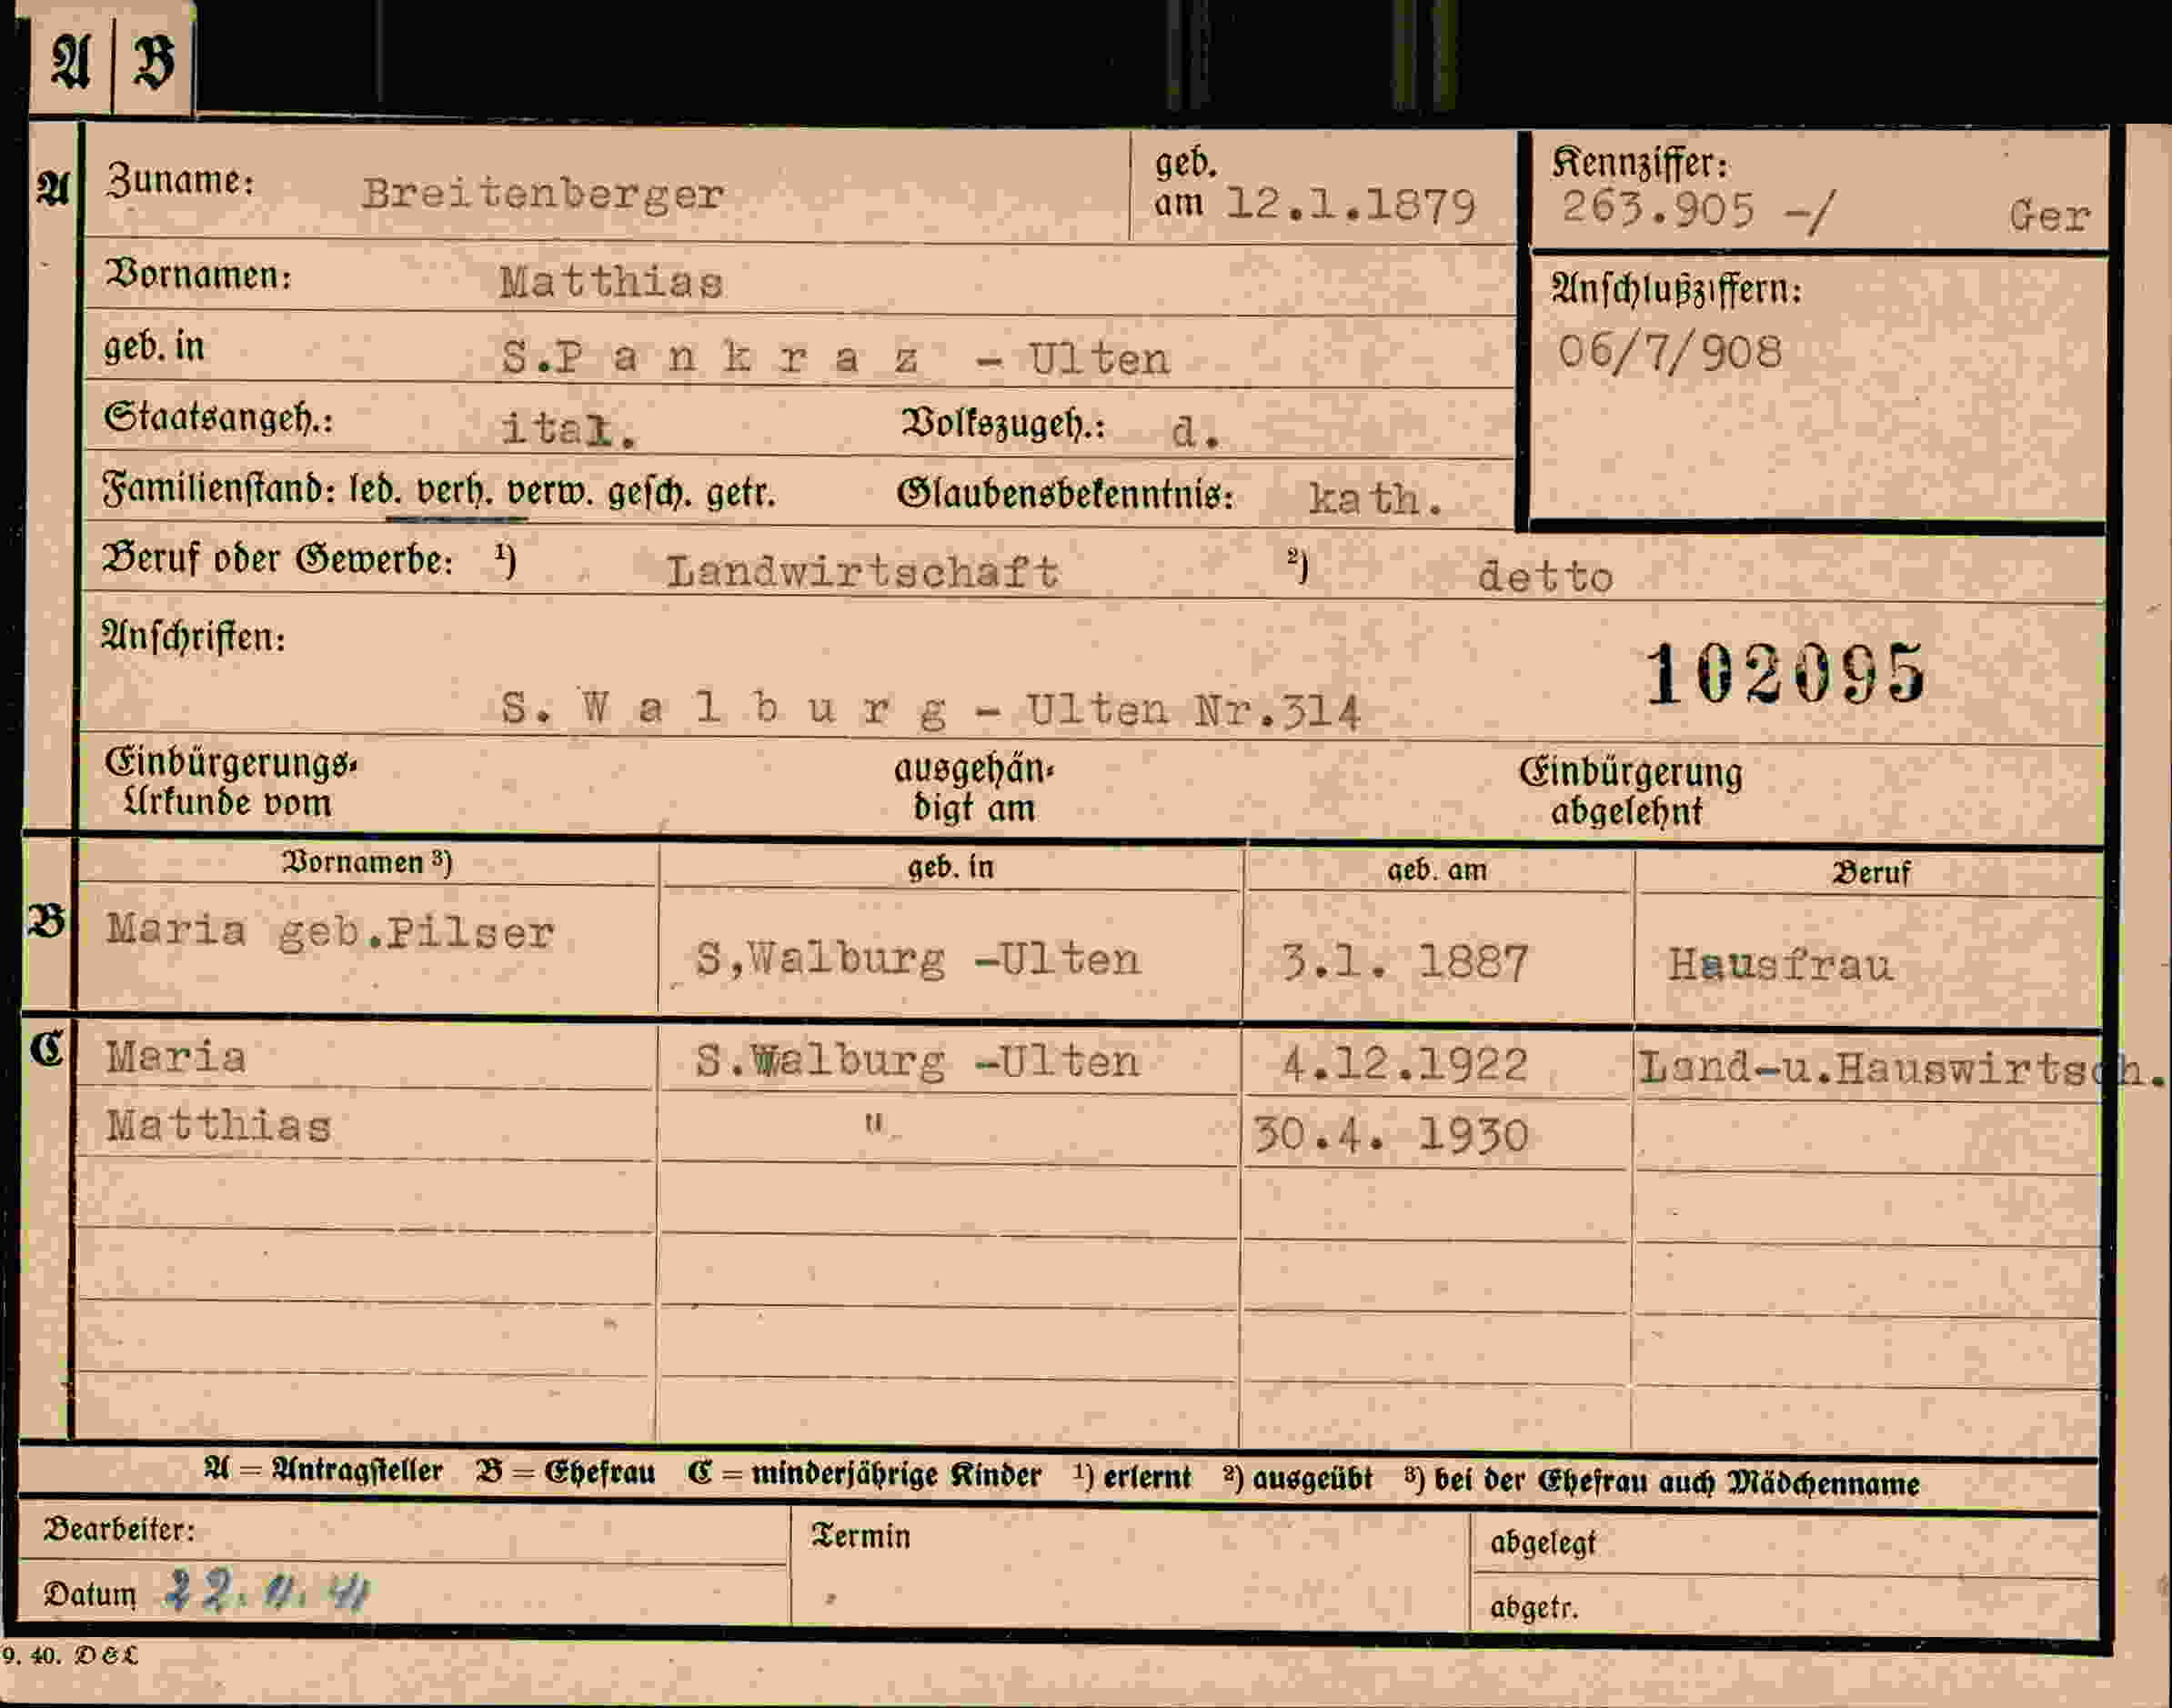 A B
A Zuname: Breitenberger geb. am 12.1.1879 Kennziffer: 263.905 -/ Ger
Vornamen: Matthias Anschlußziffern:
geb. in S.P a n k r a z - Ulten 06/7/908
Staatsangeh.: ital. Volkszugeh.: d.
Familienstand: led. verh. verw. gesch. getr. Glaubensbekenntnis: kath.
Beruf oder Gewerbe: ¹) Landwirtschaft ²) detto
Anschriften: 102095
S. W a l b u r g - Ulten Nr.314
Einbürgerungs- ausgehän- Einbürgerung
Urkunde vom digt am abgelehnt
Vornamen ³) geb. in geb. am Beruf
B Maria geb.Pilser S,Walburg -Ulten 3.1. 1887 Hausfrau
C Maria S.Walburg -Ulten 4.12.1922 Land-u.Hauswirtsch.
Matthias " 30.4. 1930
A = Antragsteller B = Ehefrau C = minderjährige Kinder ¹) erlernt ²) ausgeübt ³) bei der Ehefrau auch Mädchenname
Bearbeiter: Termin abgelegt
Datum 22. 11. 41 abgetr.
9. 40. D & L